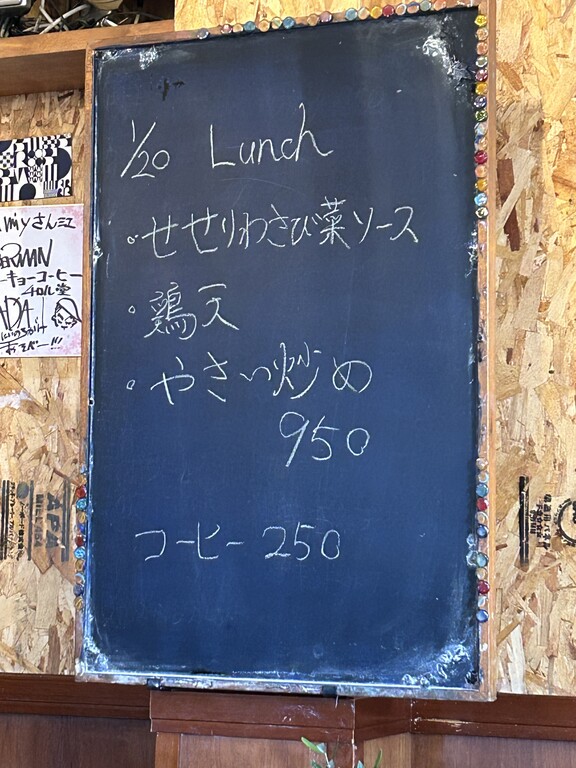 1/20 Lunch
。せせりわさび菜ソース
。鶏天
。やさい炒め
950
コーヒー 250
miyさんミュ
ーキョーコーヒー
チロル堂
APA